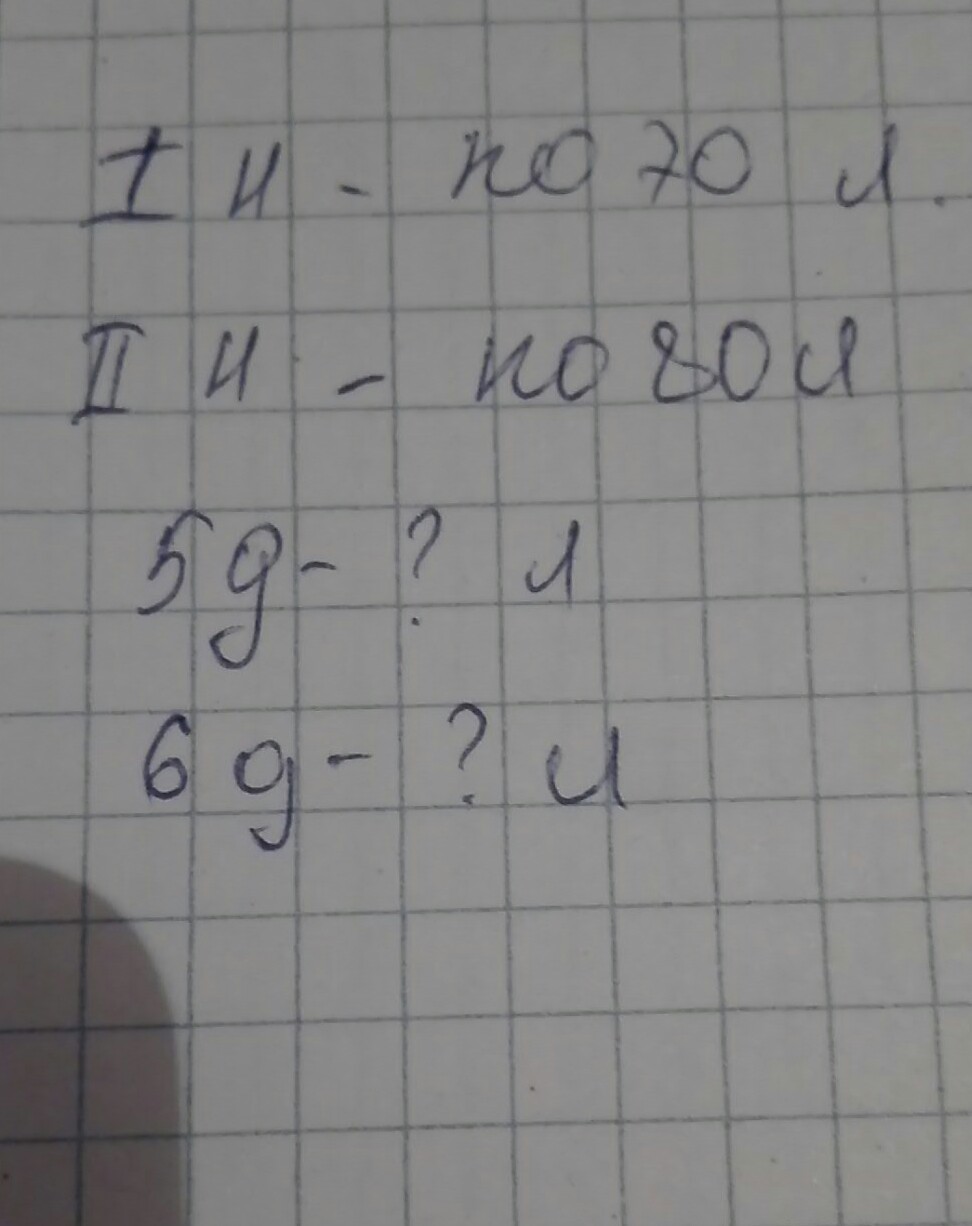 I н - по 70 л.
II н - по 80 л
5 д - ? л
6 д - ? л